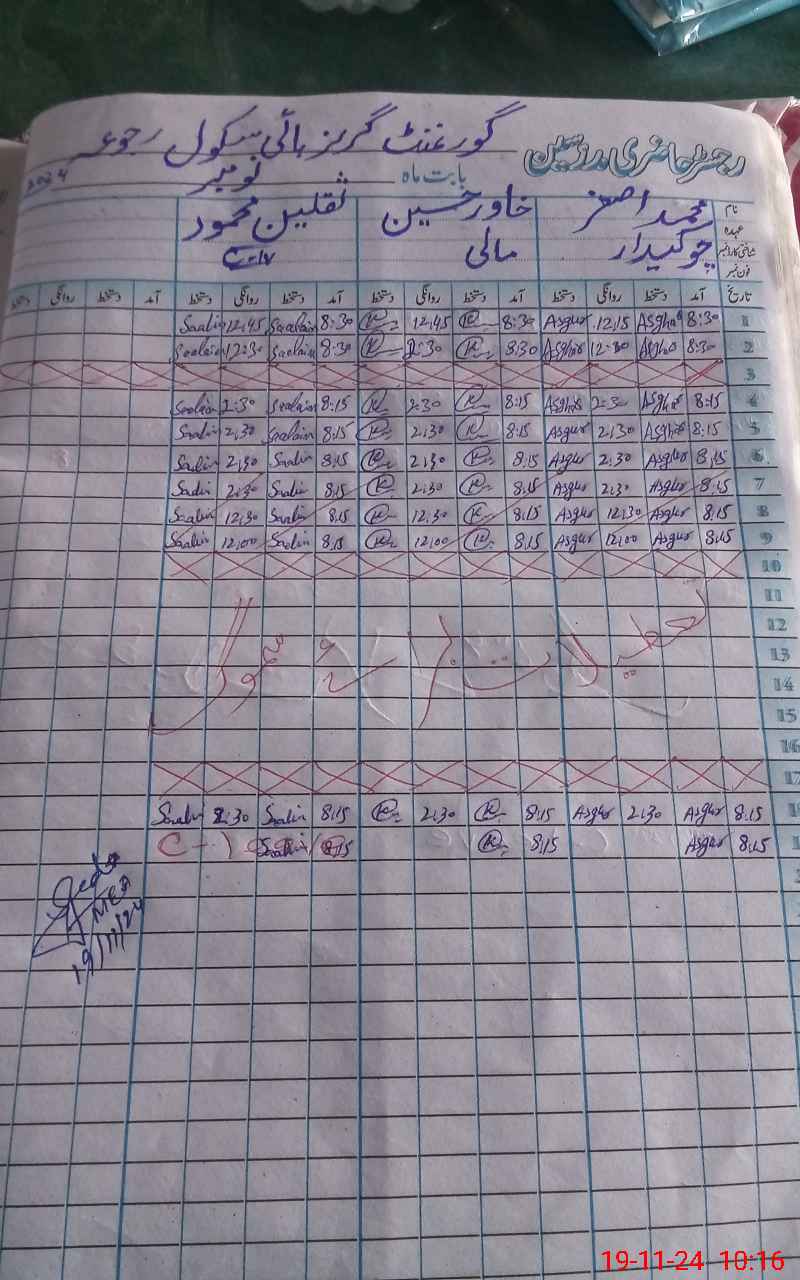 رجسٹر حاضری مدرسین گورنمنٹ گرلز ہائی سکول رجوعہ
بابت ماہ نومبر 2024
نام محمد اصغر خاور حسین ثقلین محمود
عہدہ چوکیدار مالی C-IV
شناختی کارڈ نمبر
فون نمبر
تاریخ آمد دستخط روانگی دستخط آمد دستخط روانگی دستخط آمد دستخط روانگی دستخط آمد دستخط روانگی دستخط
1 8:30 Asghar 12,15 Asgher 8:30 K 12,45 K 8:30 Saalain 12,45 Saalin
2 8:30 Asghar Asghar 8:30 K 2:30 K 8:30 Saalain 12:30 Saalain
3
4 8:15 Asghar 2:30 Asghar 8:15 K 2:30 K 8:15 Saalain 2:30 Saalain
5 8:15 Asghar 2,30 Asgher 8:15 K 2,30 K 8:15 Saalain 2,30 Saalin
6 8,15 Asgher 2,30 Asgher 8,15 K 2,30 K 8,15 Saalin 2,30 Saalin
7 8:15 Asgher 2,30 Asgher 8,15 K 2,30 K 8,15 Saalin 2:30 Saalin
8 8,15 Asgher 12,30 Asgher 8,15 K 12,30 K 8,15 Saalin 12,30 Saalin
9 8,15 Asgher 12,00 Asgher 8,15 K 12,00 K 8,15 Saalin 12,00 Saalin
10
11
12
13
تعطیلات برائے سموگ
14
15
16
17
8:15 Asgher 2,30 Asgher 8:15 K 2,30 K 8,15 Saalin 2:30 Saalin
8:15 Asgher 8:15 K 8:15 Saalin
MEA
19/11/24
19-11-24 10:16